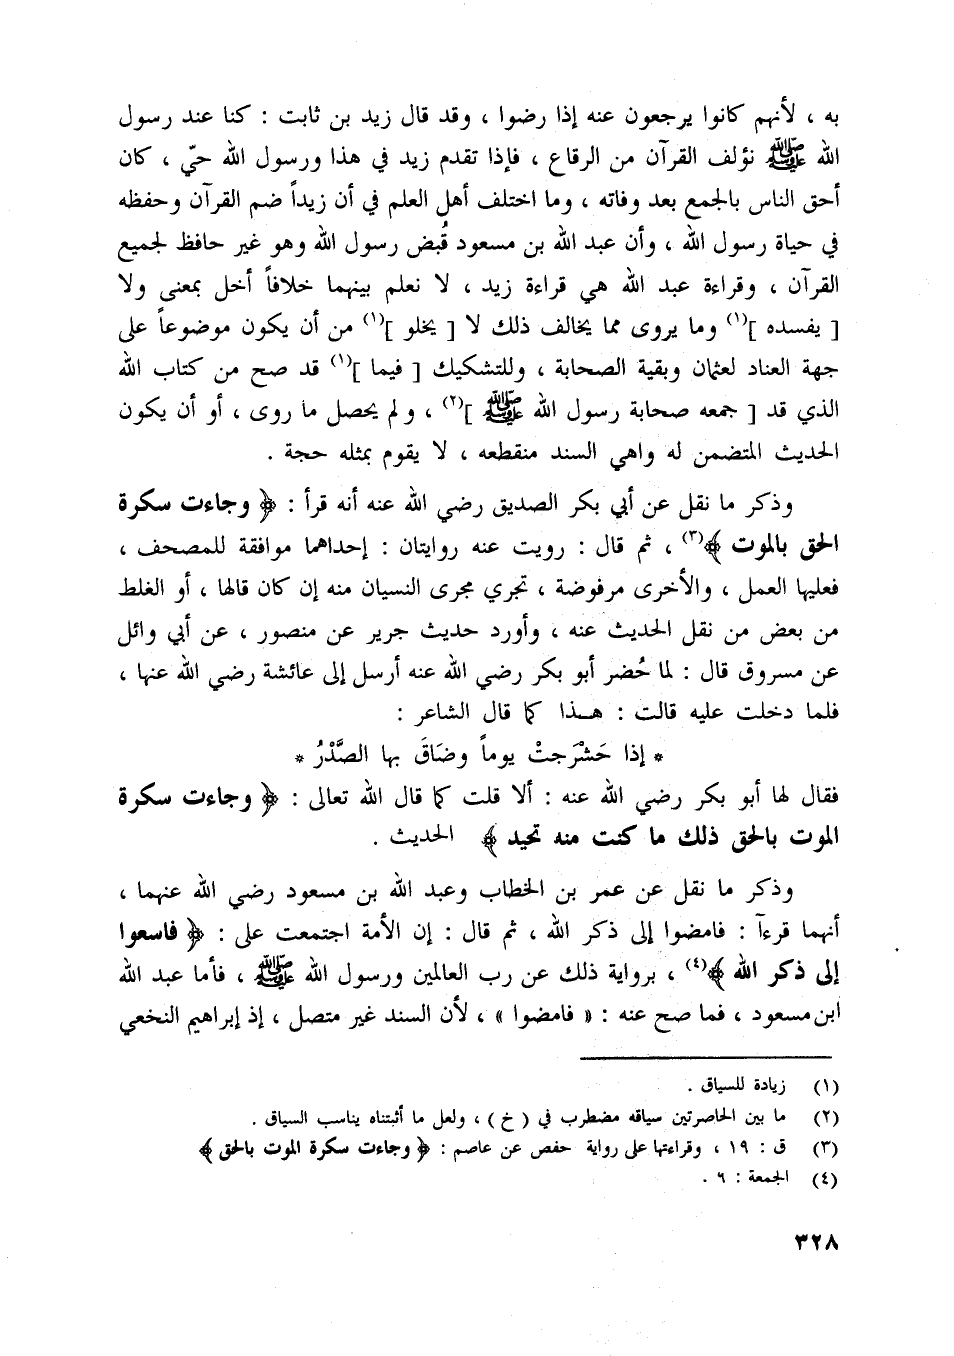 به ، لأنهم كانوا يرجعون عنه إذا رضوا ، وقد قال زيد بن ثابت : كنا عند رسول
الله ﷺ نؤلف القرآن من الرقاع ، فإذا تقدم زيد في هذا ورسول الله حيّ ، كان
أحق الناس بالجمع بعد وفاته ، وما اختلف أهل العلم في أن زيداً ضم القرآن وحفظه
في حياة رسول الله ، وأن عبد الله بن مسعود قُبض رسول الله وهو غير حافظ لجميع
القرآن ، وقراءة عبد الله هي قراءة زيد ، لا نعلم بينهما خلافاً أخل بمعنى ولا
[ يفسده ](١) وما يروى مما يخالف ذلك لا [ يخلو ](١) من أن يكون موضوعاً على
جهة العناد لعثمان وبقية الصحابة ، وللتشكيك [ فيما ](١) قد صح من كتاب الله
الذي قد [ جمعه صحابة رسول الله ﷺ ](٢) ، ولم يحصل ما روى ، أو أن يكون
الحديث المتضمن له واهي السند منقطعه ، لا يقوم بمثله حجة .
وذكر ما نقل عن أبي بكر الصديق رضي الله عنه أنه قرأ : ﴿ وجاءت سكرة
الحق بالموت ﴾(٣) ، ثم قال : رويت عنه روايتان : إحداهما موافقة للمصحف ،
فعليها العمل ، والأخرى مرفوضة ، تجري مجرى النسيان منه إن كان قالها ، أو الغلط
من بعض من نقل الحديث عنه ، وأورد حديث جرير عن منصور ، عن أبي وائل
عن مسروق قال : لما حُضر أبو بكر رضي الله عنه أرسل إلى عائشة رضي الله عنها ،
فلما دخلت عليه قالت : هـذا كما قال الشاعر :
* إذا حَشْرَجتْ يوماً وضَاقَ بها الصَّدْرُ *
فقال لها أبو بكر رضي الله عنه : ألا قلت كما قال الله تعالى : ﴿ وجاءت سكرة
الموت بالحق ذلك ما كنت منه تحيد ﴾ الحديث .
وذكر ما نقل عن عمر بن الخطاب وعبد الله بن مسعود رضي الله عنهما ،
أنهما قرءآ : فامضوا إلى ذكر الله ، ثم قال : إن الأمة اجتمعت على : ﴿ فاسعوا
إلى ذكر الله ﴾(٤) ، برواية ذلك عن رب العالمين ورسول الله ﷺ ، فأما عبد الله
ابن مسعود ، فما صح عنه : « فامضوا » ، لأن السند غير متصل ، إذ إبراهيم النخعي
(١) زيادة للسياق .
(٢) ما بين الحاصرتين سياقه مضطرب في ( خ ) ، ولعل ما أثبتناه يناسب السياق .
(٣) ق : ١٩ ، وقراءتها على رواية حفص عن عاصم : ﴿ وجاءت سكرة الموت بالحق ﴾
(٤) الجمعة : ٦ .
٣٢٨